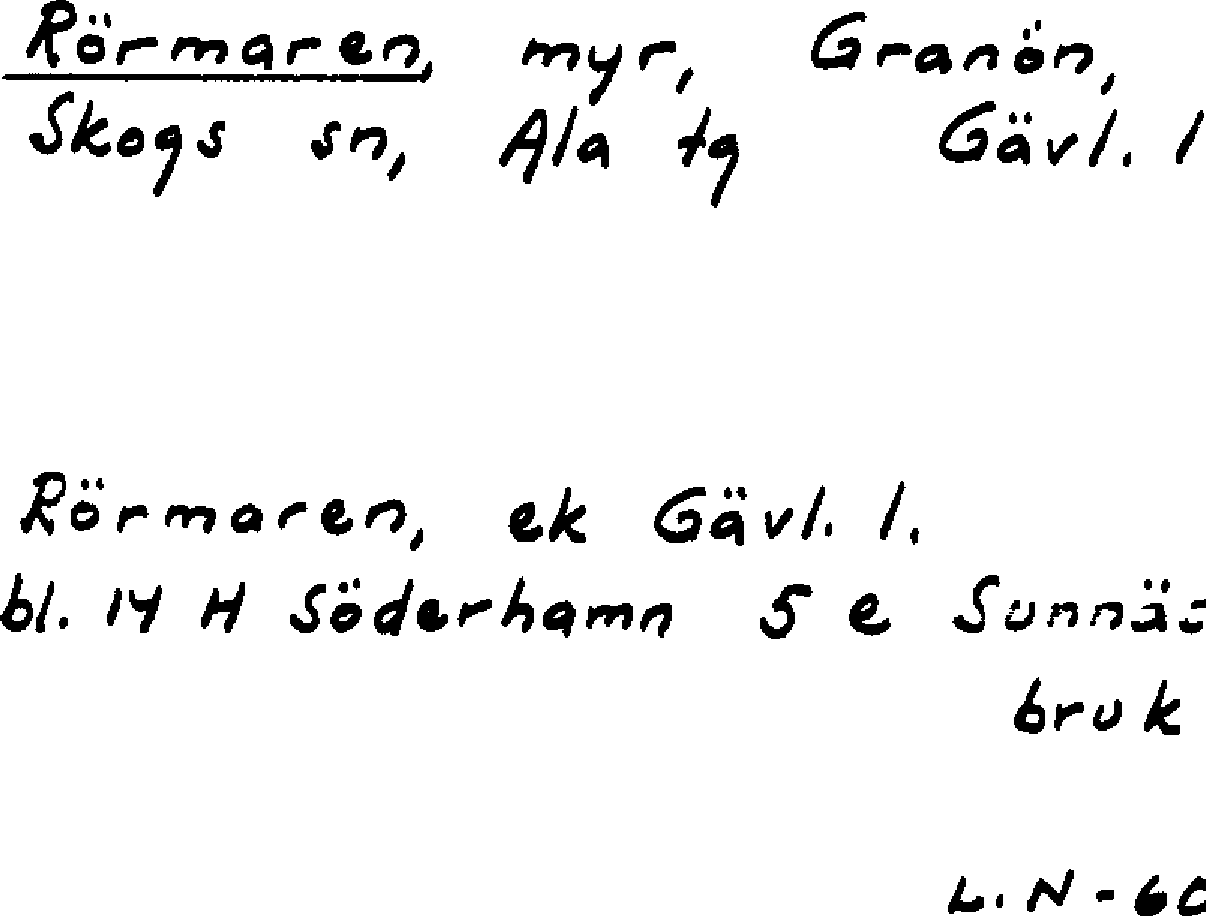 Rörmaren, myr, Granön,
Skogs sn, Ala tg Gävl. l
Rörmaren, ek Gävl. l.
bl. 14 H Söderhamn 5 e Sunnäs
bruk
L. N - 60